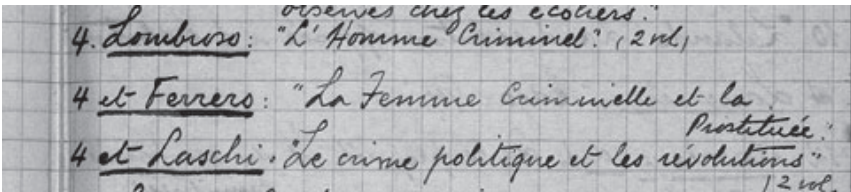 observés chez les écoliers."
4. Lombroso: "L'Homme Criminel". (2 vol)
4 et Ferrero: "La Femme Criminelle et la
Prostituée".
4 et Laschi. "Le crime politique et les révolutions"
(2 vol.